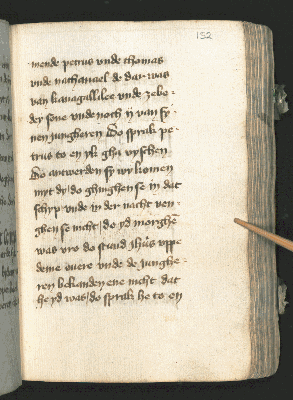 152
mende petrus vnde thomas
vnde nathanael de dar was
van kanagallilee vnde zebe-
dey sone vnde noch ij van sy-
nen jungheren Do sprak pe-
trus to en yk gha vysschen
So antwerden sy wy komen
myt dy do ghinghen se in dat
schyp vnde in der nacht ven-
ghen se nicht do yd morghen
was vro do stund jhesus vppe
deme ouere vnde de junghe-
ren bekanden ene nicht dat
he yd was do sprak he to en